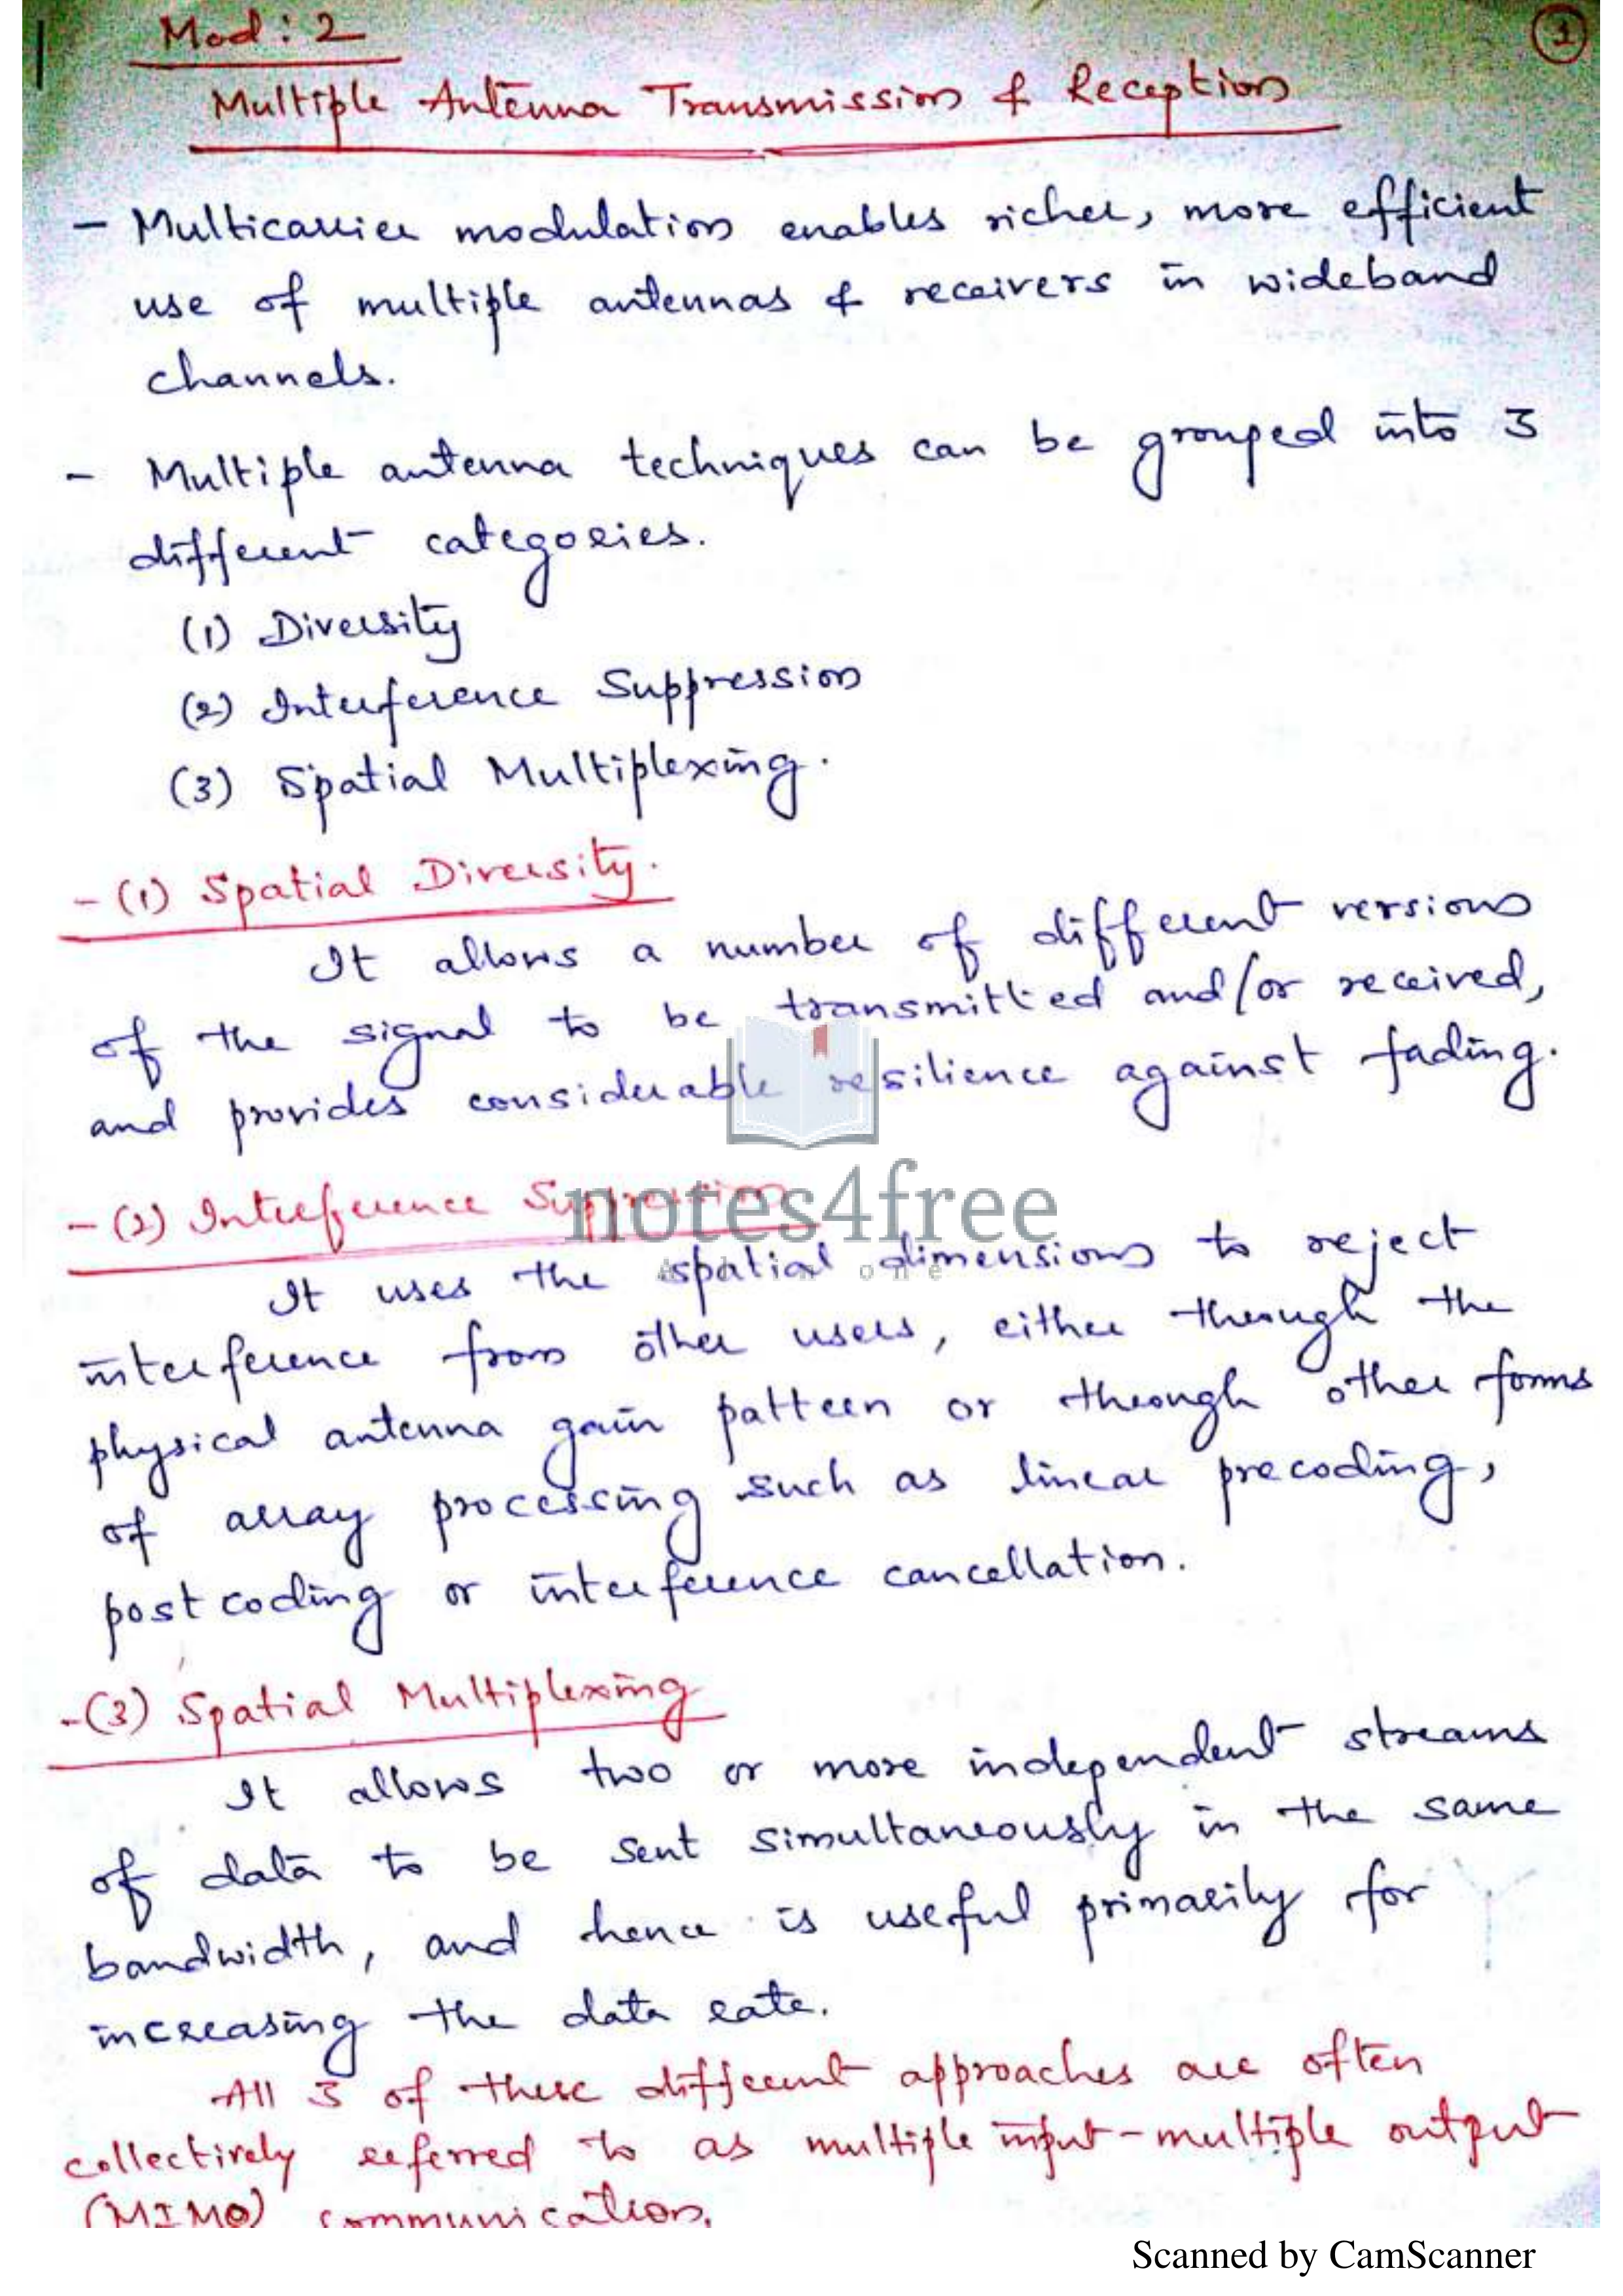 Mod: 2
1
Multiple Antenna Transmission & Reception
- Multicarrier modulation enables richer, more efficient
use of multiple antennas & receivers in wideband
channels.
- Multiple antenna techniques can be grouped into 3
different categories.
(1) Diversity
(2) Interference Suppression
(3) Spatial Multiplexing.
- (1) Spatial Diversity.
It allows a number of different versions
of the signal to be transmitted and/or received,
and provides considerable resilience against fading.
- (2) Interference Suppression
notes4free
It uses the spatial dimensions to reject
interference from other users, either through the
physical antenna gain pattern or through other forms
of array processing such as linear precoding,
postcoding or interference cancellation.
- (3) Spatial Multiplexing
It allows two or more independent streams
of data to be sent simultaneously in the same
bandwidth, and hence is useful primarily for
increasing the data rate.
All 3 of these different approaches are often
collectively referred to as multiple input-multiple output
(MIMO) communication.
Scanned by CamScanner